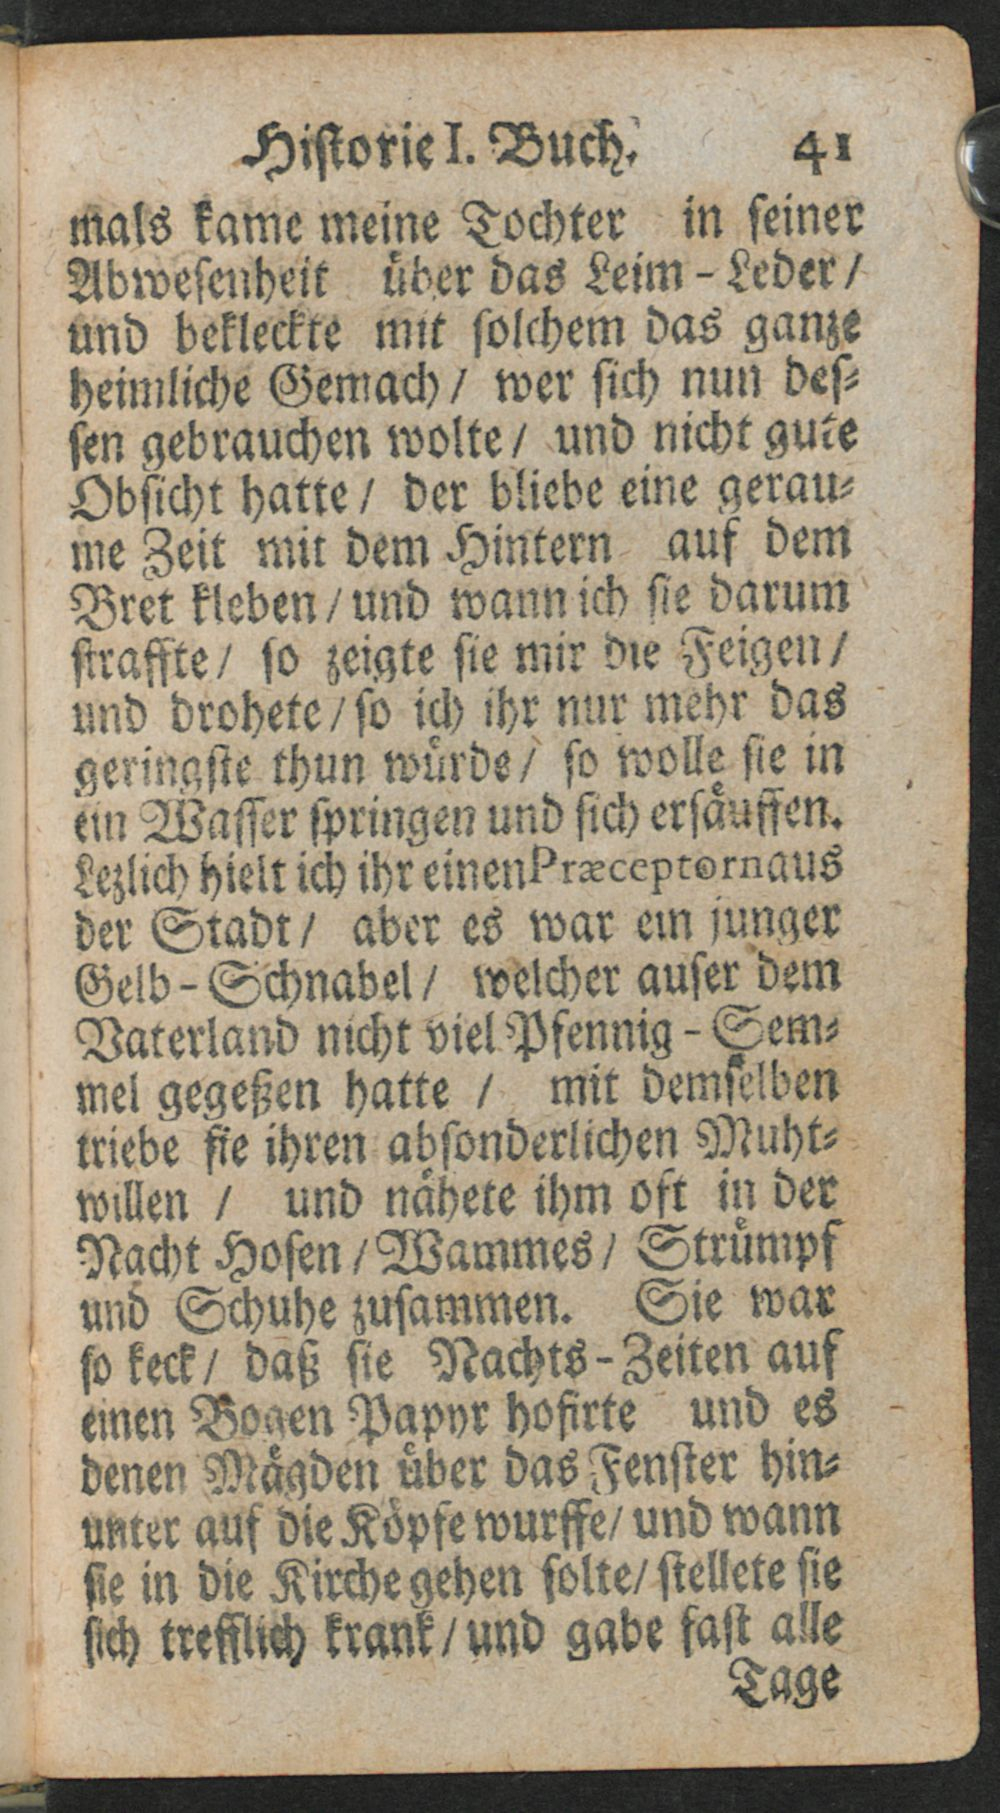 Hiſtorie I. Buch. 41
mals kame meine Tochter in ſeiner
Abweſenheit uͤber das Leim-Leder/
und bekleckte mit ſolchem das ganze
heimliche Gemach/ wer ſich nun deſ-
ſen gebrauchen wolte/ und nicht gute
Obſicht hatte/ der bliebe eine gerau-
me Zeit mit dem Hintern auf dem
Bret kleben/ und wann ich ſie darum
ſtraffte/ ſo zeigte ſie mir die Feigen/
und drohete/ ſo ich ihr nur mehr das
geringſte thun wuͤrde/ ſo wolle ſie in
ein Waſſer ſpringen und ſich erſaͤuffen.
Lezlich hielt ich ihr einen Præceptorn aus
der Stadt/ aber es war ein junger
Gelb-Schnabel/ welcher auſer dem
Vaterland nicht viel Pfennig-Sem-
mel gegeßen hatte / mit demſelben
triebe ſie ihren abſonderlichen Muht-
willen / und naͤhete ihm oft in der
Nacht Hoſen/ Wammes/ Struͤmpf
und Schuhe zuſammen. Sie war
ſo keck/ daß ſie Nachts-Zeiten auf
einen Bogen Papyr hofirte und es
denen Maͤgden uͤber das Fenſter hin-
unter auf die Koͤpfe wurffe/ und wann
ſie in die Kirche gehen ſolte/ ſtellete ſie
ſich trefflich krank/ und gabe faſt alle
Tage